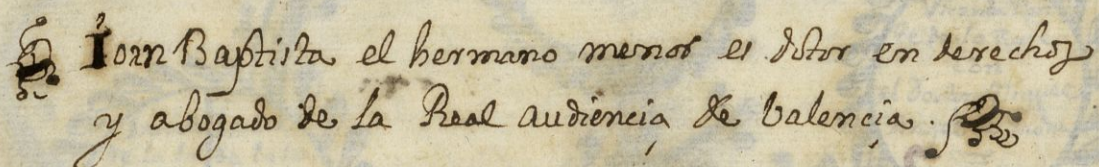 Ioan Baptista el hermano menor es dotor en derechos
y abogado de la Real audiençia de valençia.